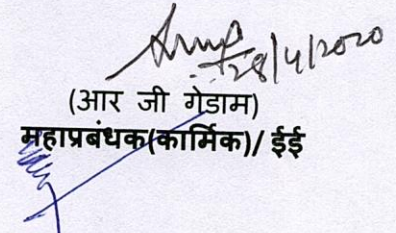 28/4/2020
(आर जी गेडाम)
महाप्रबंधक(कार्मिक)/ ईई